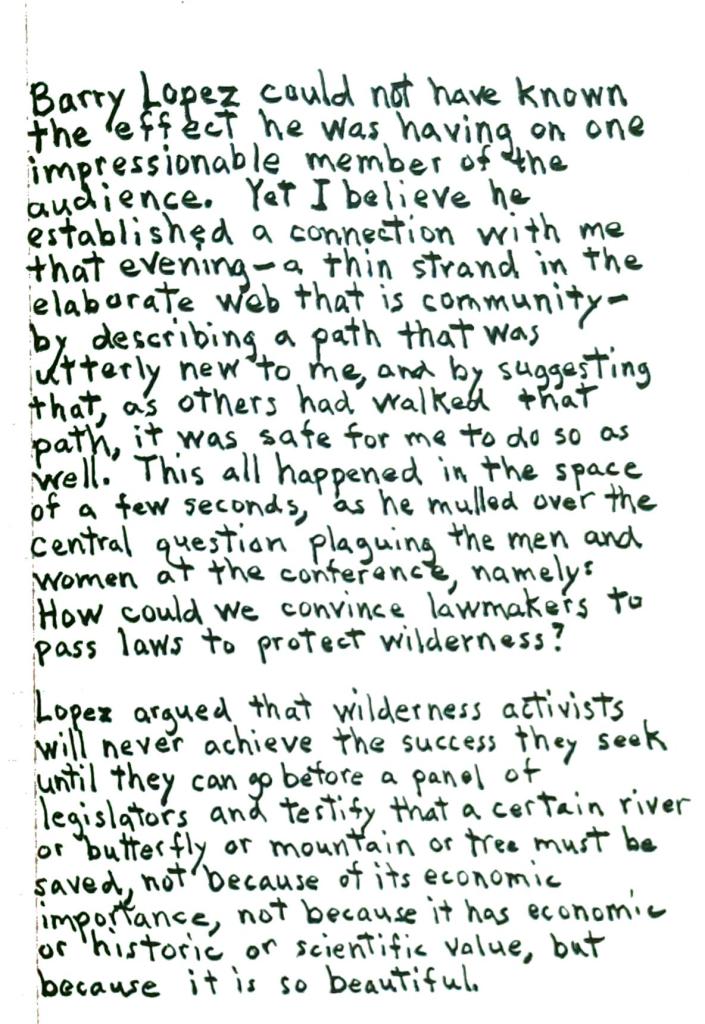 Barry Lopez could not have known
the effect he was having on one
impressionable member of the
audience. Yet I believe he
established a connection with me
that evening—a thin strand in the
elaborate web that is community—
by describing a path that was
utterly new to me, and by suggesting
that, as others had walked that
path, it was safe for me to do so as
well. This all happened in the space
of a few seconds, as he mulled over the
central question plaguing the men and
women at the conference, namely:
How could we convince lawmakers to
pass laws to protect wilderness?

Lopez argued that wilderness activists
will never achieve the success they seek
until they can go before a panel of
legislators and testify that a certain river
or butterfly or mountain or tree must be
saved, not because of its economic
importance, not because it has economic
or historic or scientific value, but
because it is so beautiful.